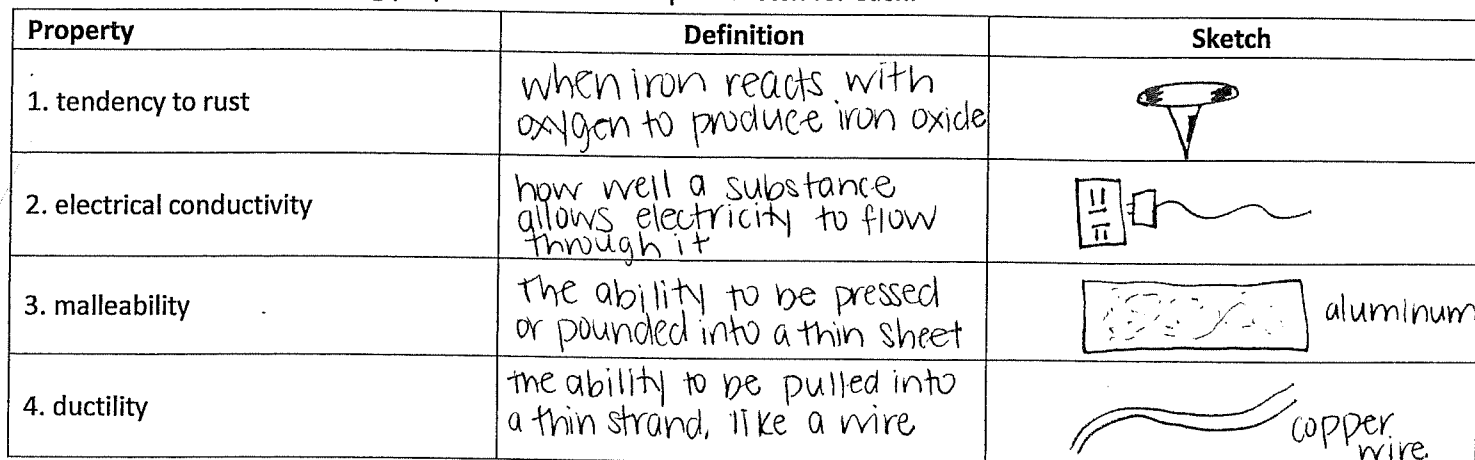 Property Definition Sketch
1. tendency to rust
when iron reacts with
oxygen to produce iron oxide
2. electrical conductivity
how well a substance
allows electricity to flow
through it
3. malleability
the ability to be pressed
or pounded into a thin sheet
aluminum
4. ductility
the ability to be pulled into
a thin strand, like a wire
copper
wire